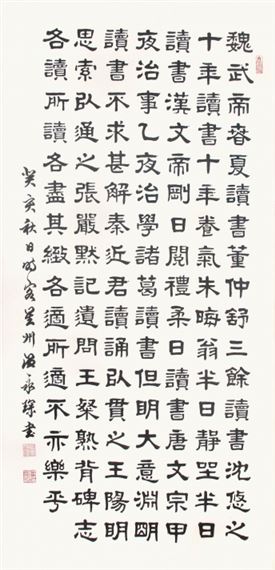 魏武帝春夏讀書董仲舒三餘讀書沈悠之
十年讀書十年養氣朱晦翁半日靜坐半日
讀書漢文帝剛日閱禮柔日讀書唐文宗甲
夜治事乙夜治學諸葛讀書但明大意淵明
讀書不求甚解秦近君讀誦以貫之王陽明
思索以通之張嚴默記遺問王粲熟背碑志
各讀所讀各盡其緻各適所適不亦樂乎
癸亥秋日時客星州溫永琛書